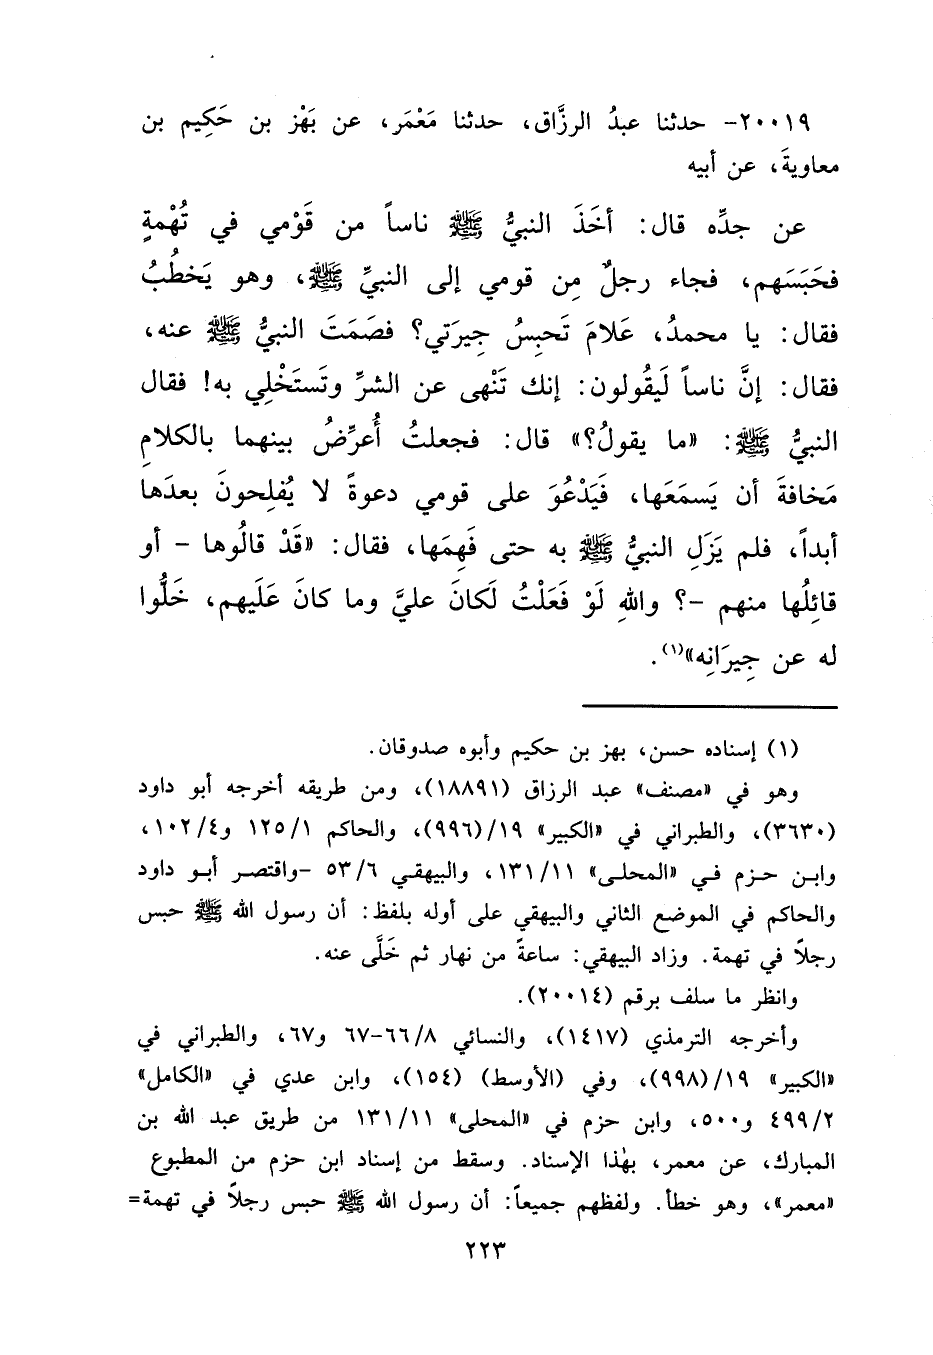 ٢٠٠١٩- حدثنا عبدُ الرزَّاق، حدثنا مَعْمَر، عن بَهْز بن حَكِيم بن
معاويةَ، عن أبيه
عن جدِّه قال: أخَذَ النبيُّ ﷺ ناساً من قَوْمي في تُهْمةٍ
فحَبَسَهم، فجاء رجلٌ مِن قومي إلى النبيِّ ﷺ، وهو يَخطُبُ
فقال: يا محمدُ، عَلامَ تَحبِسُ جِيرَتي؟ فصَمَتَ النبيُّ ﷺ عنه،
فقال: إنَّ ناساً لَيقُولون: إنك تَنْهى عن الشرِّ وتَستَخْلِي به! فقال
النبيُّ ﷺ: «ما يقولُ؟» قال: فجعلتُ أُعرِّضُ بينهما بالكلامِ
مَخافةَ أن يَسمَعَها، فيَدْعُوَ على قومي دعوةً لا يُفلِحونَ بعدَها
أبداً، فلم يَزَلِ النبيُّ ﷺ به حتى فَهِمَها، فقال: «قَدْ قالُوها - أو
قائِلُها منهم -؟ واللهِ لَوْ فَعَلْتُ لَكانَ عليَّ وما كانَ عَلَيهم، خَلُّوا
له عن جِيرَانِه»(١).
(١) إسناده حسن، بهز بن حكيم وأبوه صدوقان.
وهو في «مصنف» عبد الرزاق (١٨٨٩١)، ومن طريقه أخرجه أبو داود
(٣٦٣٠)، والطبراني في «الكبير» ١٩/(٩٩٦)، والحاكم ١٢٥/١ و١٠٢/٤،
وابن حزم في «المحلى» ١٣١/١١، والبيهقي ٥٣/٦ -واقتصر أبو داود
والحاكم في الموضع الثاني والبيهقي على أوله بلفظ: أن رسول الله ﷺ حبس
رجلاً في تهمة. وزاد البيهقي: ساعةً من نهار ثم خَلَّى عنه.
وانظر ما سلف برقم (٢٠٠١٤).
وأخرجه الترمذي (١٤١٧)، والنسائي ٦٦/٨-٦٧ و٦٧، والطبراني في
«الكبير» ١٩/(٩٩٨)، وفي (الأوسط) (١٥٤)، وابن عدي في «الكامل»
٤٩٩/٢ و٥٠٠، وابن حزم في «المحلى» ١٣١/١١ من طريق عبد الله بن
المبارك، عن معمر، بهٰذا الإسناد. وسقط من إسناد ابن حزم من المطبوع
«معمر»، وهو خطأ. ولفظهم جميعاً: أن رسول الله ﷺ حبس رجلاً في تهمة=
٢٢٣